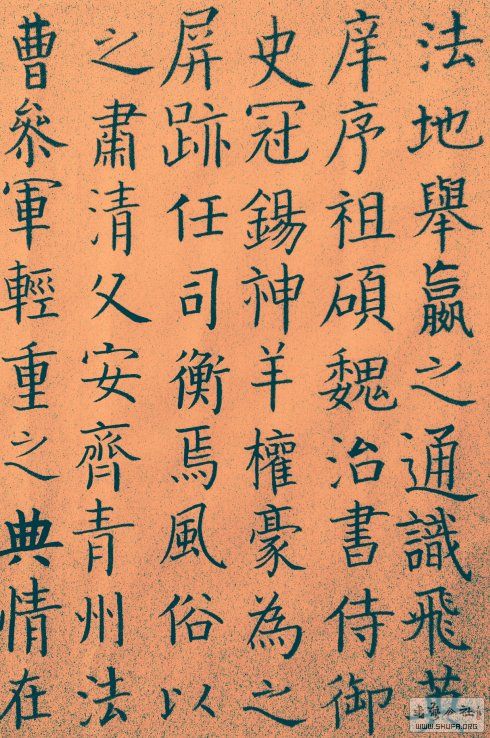 法地舉嬴之通識飛英
庠序祖碩魏治書侍御
史冠錫神羊權豪為之
屏跡任司衡焉風俗以
之肅清父安齊青州法
曹參軍輕重之典情在
WWW.SHUFA.ORG